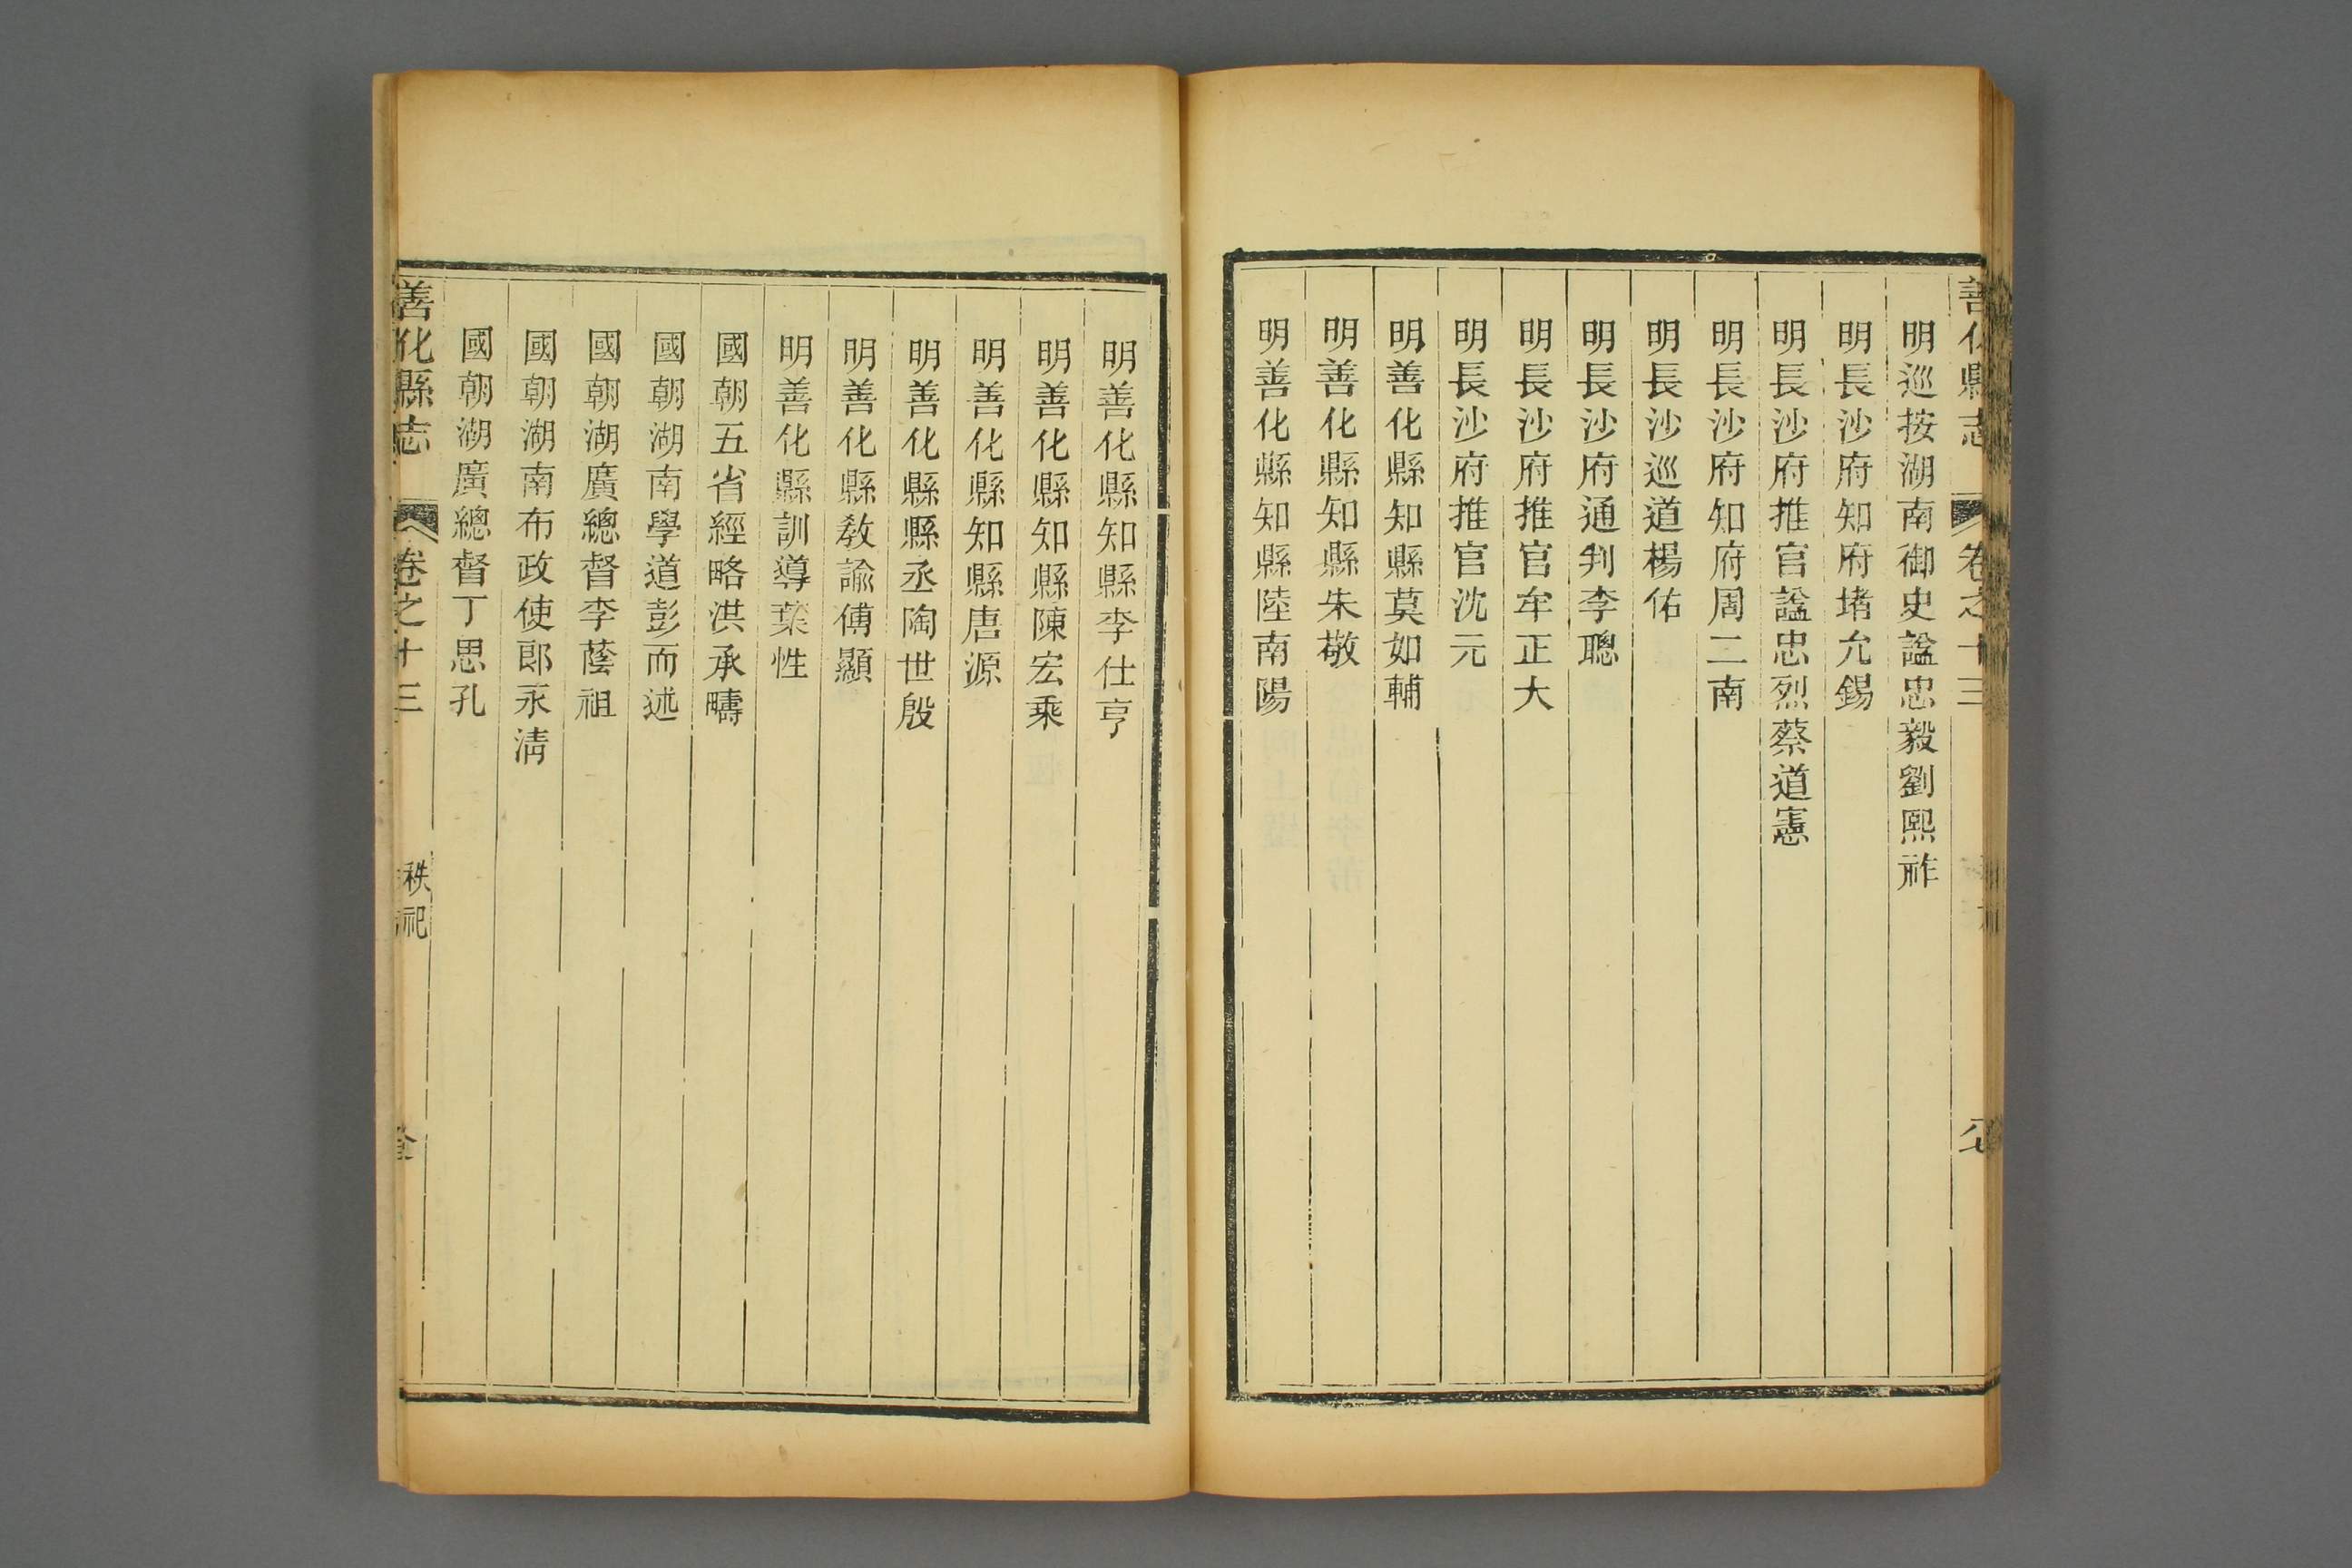 善化縣志 卷之十三
明巡按湖南御史諡忠毅劉熙祚
明長沙府知府堵允錫
明長沙府推官諡忠烈蔡道憲
明長沙府知府周二南
明長沙巡道楊佑
明長沙府通判李聰
明長沙府推官牟正大
明長沙府推官沈元
明善化縣知縣莫如輔
明善化縣知縣朱敬
明善化縣知縣陸南陽
明善化縣知縣李仕亨
明善化縣知縣陳宏乘
明善化縣知縣唐源
明善化縣縣丞陶世殷
明善化縣教諭傅顯
明善化縣訓導葉性
國朝五省經略洪承疇
國朝湖南學道彭而述
國朝湖廣總督李蔭祖
國朝湖南布政使郎永清
國朝湖廣總督丁思孔
善化縣志 卷之十三 秩祀